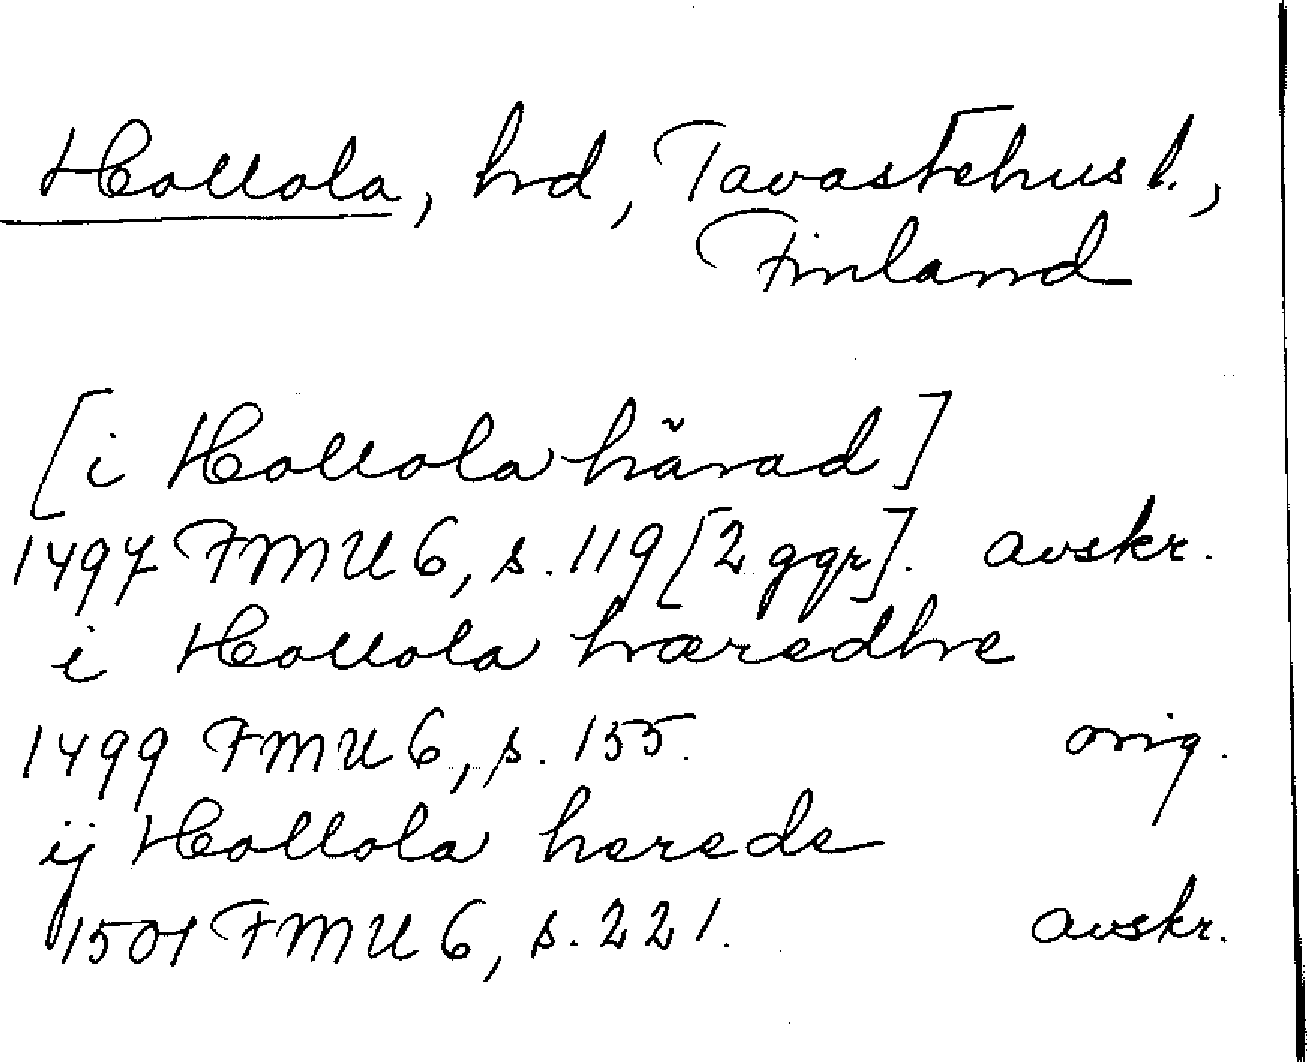 Hollola, hd, Tavastehus l.,
Finland
[i Hollola härad]
1497 FMU 6, s. 119 [2 ggr]. avskr.
i Hollola hæredhe
1499 FMU 6, s. 155. orig.
ij Hollola herede
1501 FMU 6, s. 221. avskr.